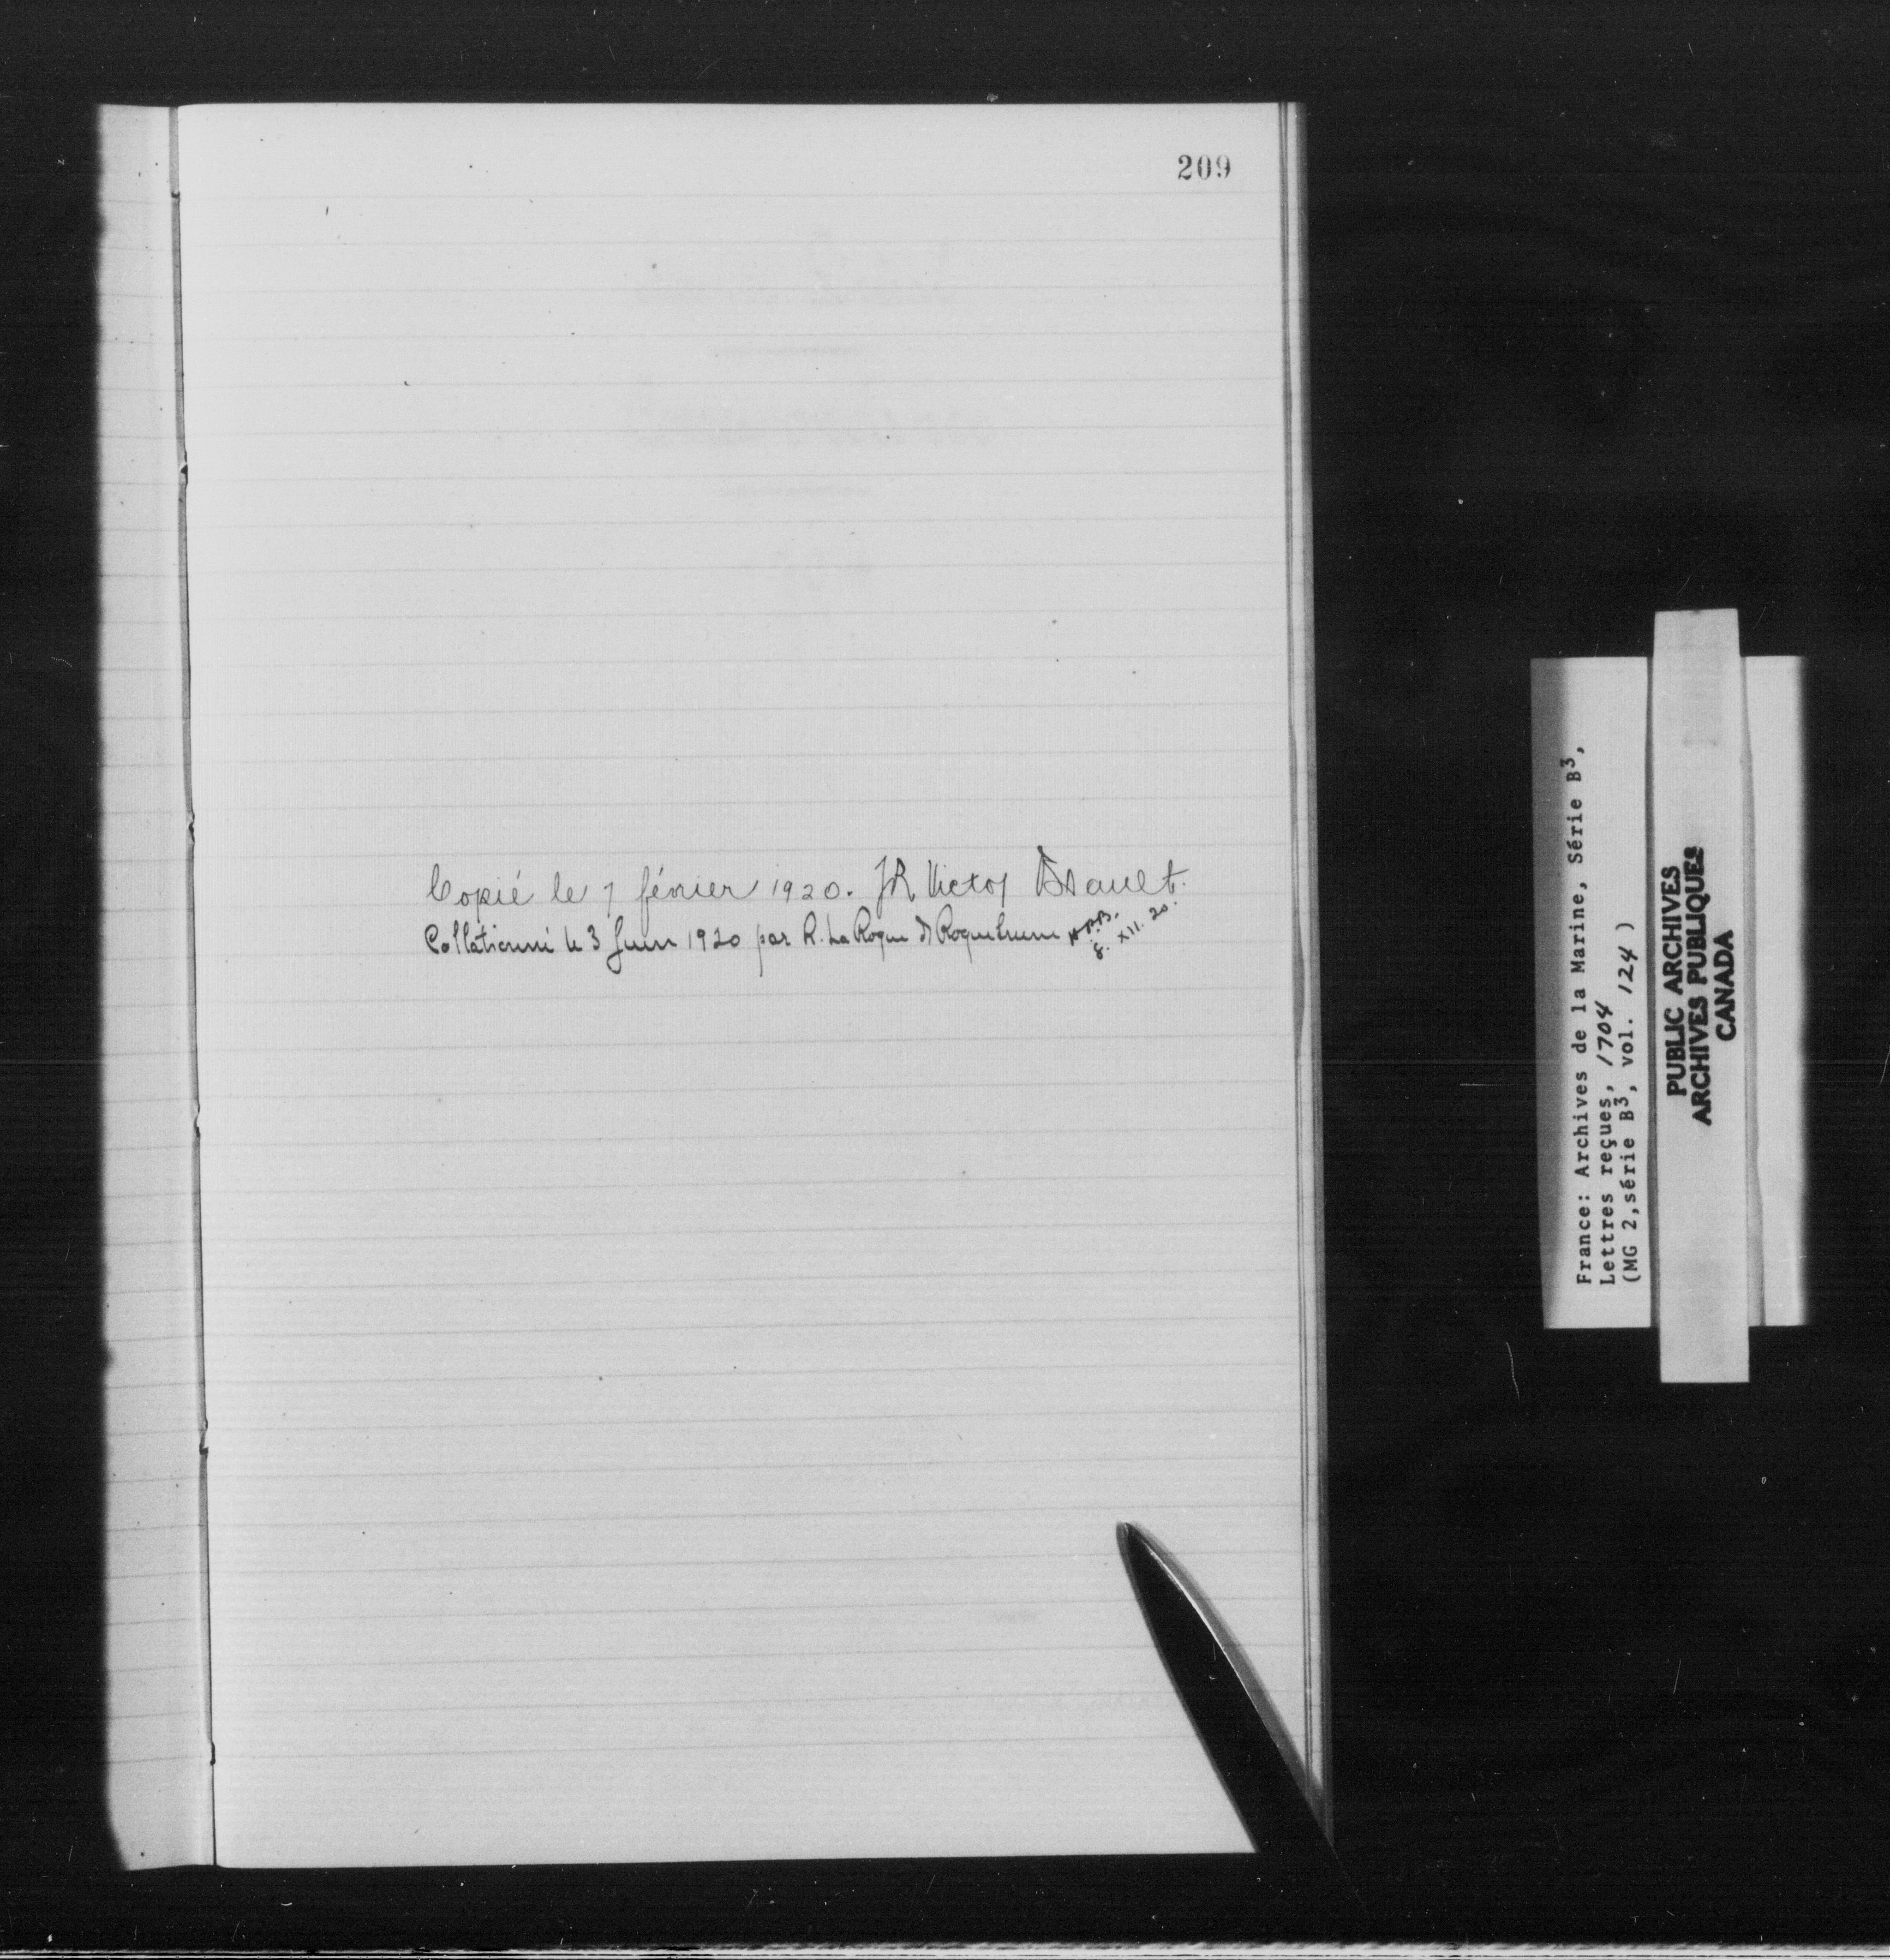 209
Copié le 7 février 1920. JR Victor
Collationné le 3 Juin 1920 par R. La Roque de Roquebrune
8. XII. 20.
France: Archives de la Marine, Série B3,
Lettres reçues, 1704
(MG 2,série B3, vol. 124 )
PUBLIC ARCHIVES
ARCHIVES PUBLIQUES
CANADA